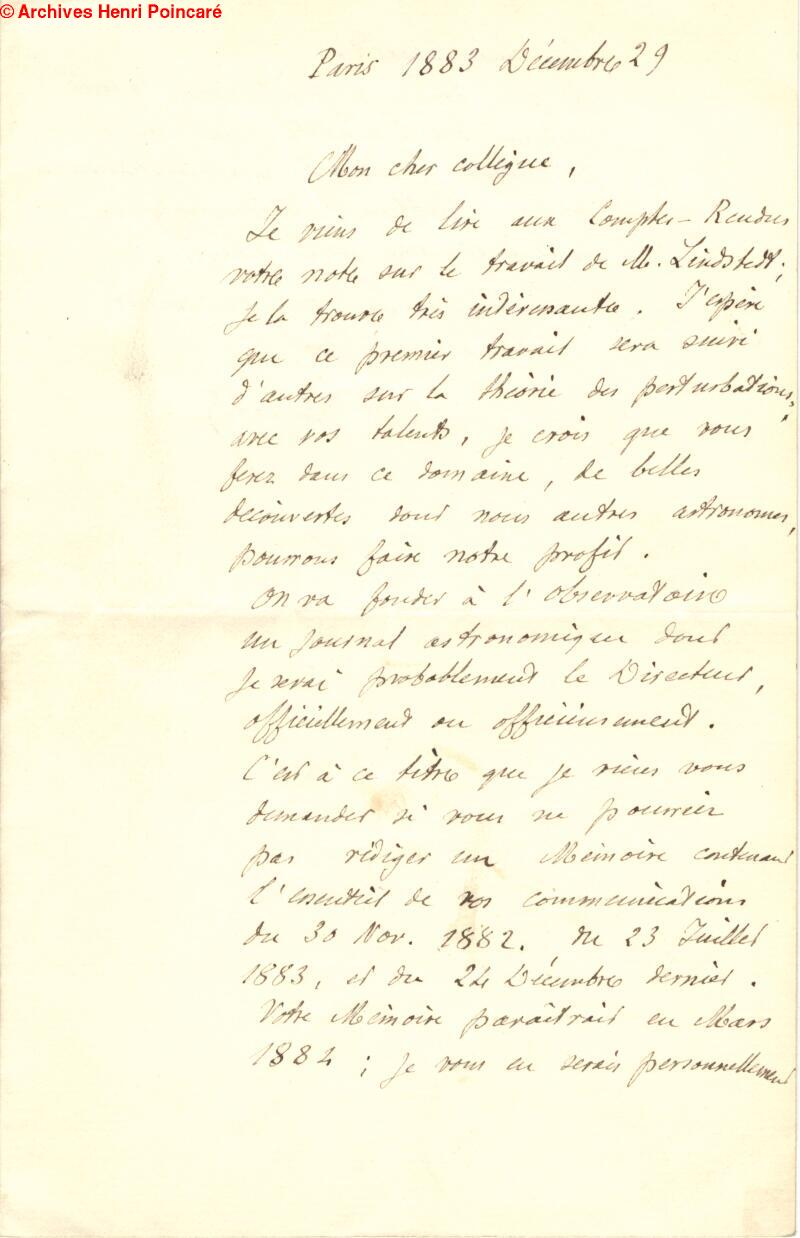 © Archives Henri Poincaré
Paris 1883 Décembre 29
Mon cher collègue,
Je viens de lire aux Comptes-Rendus
votre note sur le travail de M. Lindstedt ;
je la trouve très intéressante. J'espère
que ce premier travail sera suivi
d'autres sur la théorie des perturbations ;
avec vos talents, je crois que vous
ferez dans ce domaine, de belles
découvertes dont nous autres astronomes,
pourrons faire notre profit.
On va fonder à l'Observatoire
un journal astronomique dont
je serai probablement le Directeur,
officiellement ou officieusement.
C'est à ce titre que je viens vous
demander si vous ne pourriez
pas rédiger un Mémoire contenant
l'essentiel de vos communications
du 30 Nov. 1882. du 23 Juillet
1883, et du 24 Décembre dernier.
Votre Mémoire paraîtrait en Mars
1884 ; je vous en serais personnellement